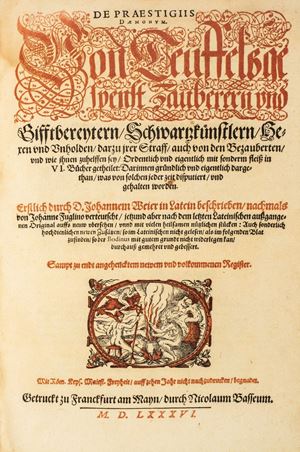 DE PRAESTIGIIS
DÆMONVM.
Von Teuffelsge
spenst Zauberern vnd
Gifftbereytern / Schwartzkünstlern / He-
xen vnd Vnholden / darzu jrer Straff / auch von den Bezauberten /
vnd wie jhnen zuhelffen sey / Ordentlich vnd eigentlich mit sonderm fleiß in
VI. Bücher getheilet: Darinnen gründlich vnd eigentlich dargethan / was von solchen jeder zeit disputiert / vnd
gehalten worden.
Erstlich durch D. Johannem Weier in Latein beschrieben / nachmals
von Johanne Fuglino verteutscht / jetzund aber nach dem letzten Lateinischen außgange-
nen Original auffs neuw vbersehen / vnnd mit vielen heilsamen nützlichen stücken: Auch sonderlich
hochdienlichen newen Zusätzen / so im Lateinischen nicht gelesen / als im folgenden Blat
zufinden / so der Bodinus mit gutem grunde nicht widerlegen kan /
durchauß gemehret vnd gebessert.
Sampt zu endt angehencktem newem vnd vollkommenen Register.
Mit Röm. Keys. Maiest. Freyheit / auff zehen Jahr nicht nachzudrucken / begnadet.
Getruckt zu Franckfurt am Mayn / durch Nicolaum Basseum.
M. D. LXXXVI.